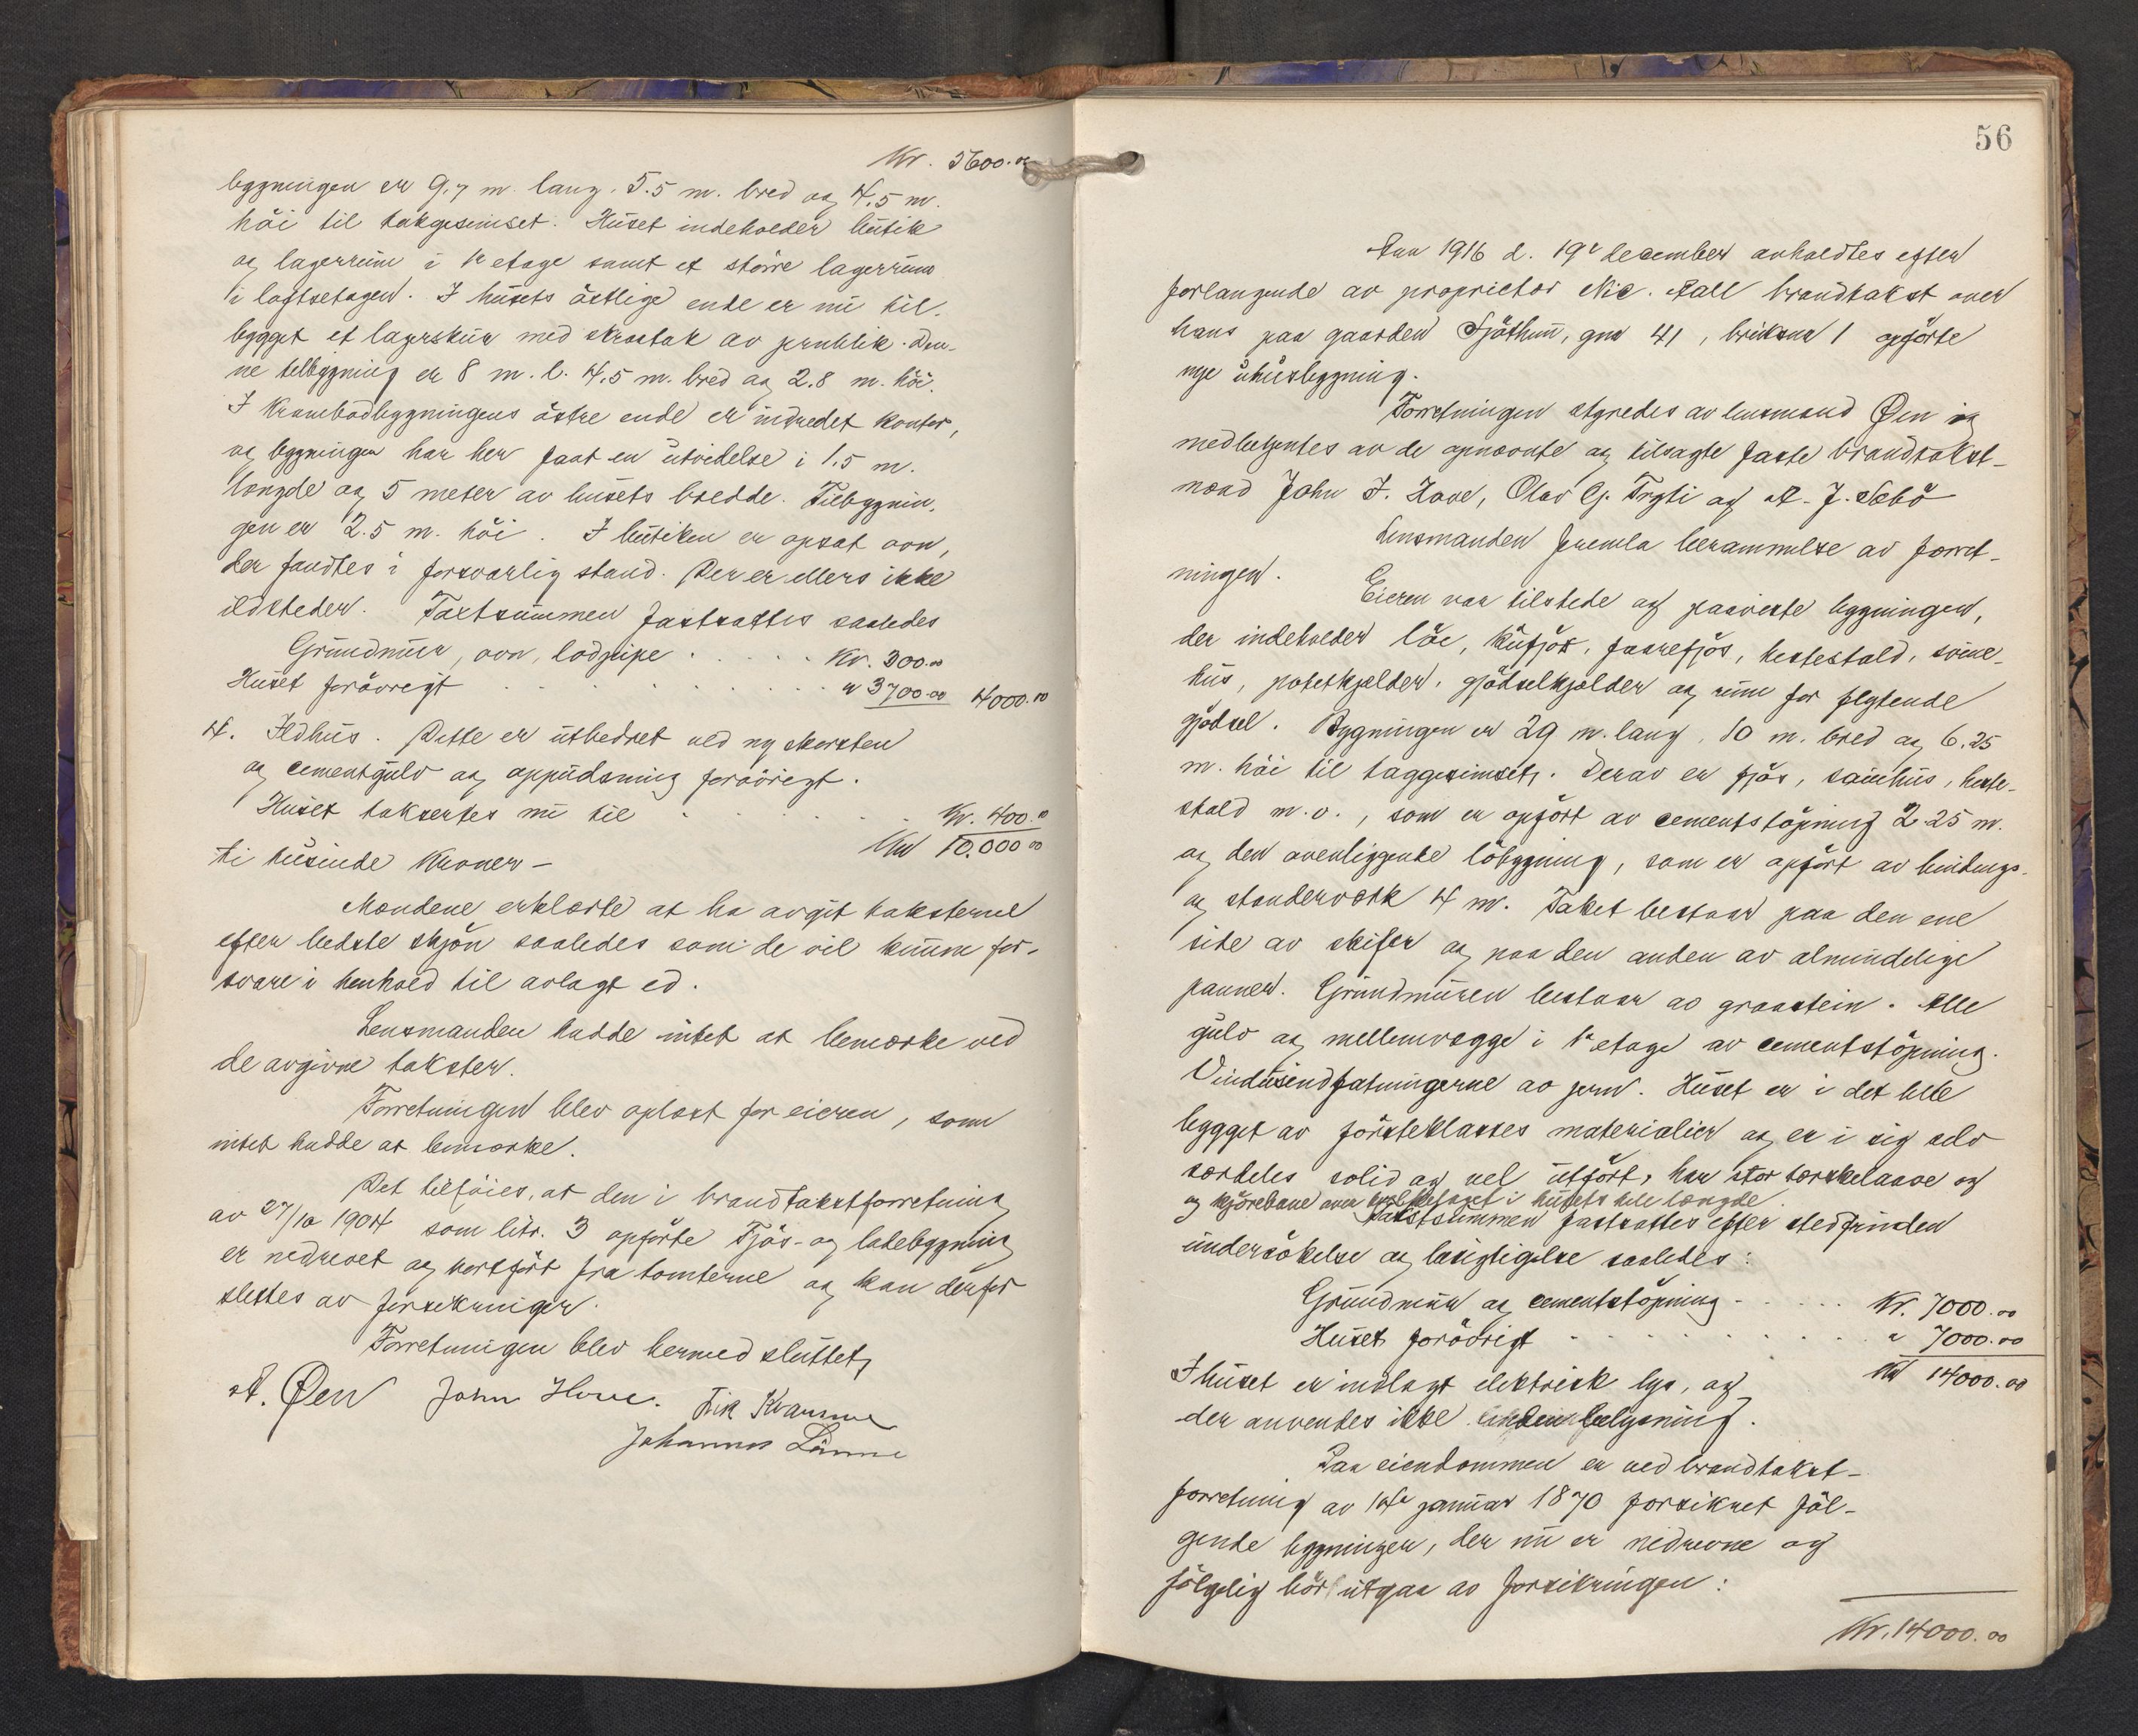 Kr. 5600.00
bygningen er 9.7 m. lang. 5.5 m. bred og 4.5 m.
höi til takgesimset. Huset indeholder butik
og lagerrum i 1ste etage samt et större lagerrum
i loftsetagen. I husets östlige ende er nu til-
bygget et lagerskur med skraatak av jernblik. Den-
ne tilbygning er 8 m. l. 4.5 m. bred og 2.8 m. höi.
I Krambodbygningens östre ende er indredet kontor,
og bygningen har her faat en utvidelse i 1.5 m.
længde og 5 meter av husets bredde. Tilbygnin-
gen er 2.5 m. höi. I butiken er opsat ovn,
der fandtes i forsvarlig stand. Der er ellers ikke
ildsteder. Taxtsummen fastsattes saaledes
Grundmur, ovn, lodpipe . . . . . Kr. 300.00
Huset forövrigt . . . . . . . . " 3700.00 4000.00
4. Ildhus. Dette er utbedret ved ny skorsten
og cementgulv og oppudsning forövrigt.
Huset takseres nu til . . . . . . Kr. 400.00
Kr 10.000 00
ti tusinde Kroner —
Mændene erklærte at ha avgit taksterne
efter bedste skjön saaledes som de vil kunne for-
svare i henhold til avlagt ed.
Lensmanden hadde intet at bemerke ved
de avgivne takster.
Forretningen blev oplæst for eieren, som
intet hadde at bemerke.
Det tilföies, at den i brandtakstforretning
av 27/10 1904 som litr. 3 opförte Fjös- og ladebygning
er nedrevet og bortfört fra tomterne og kan derfor
slettes av forsikringen.
Forretningen blev hermed sluttet,
A. Øen John Hove. Eirik Kvamme
Johannes Lånne
56
Aar 1916 d. 19de december avholdtes efter
forlangende av proprietær Nic. Fall brandtakst over
hans paa gaarden Sjöthun, gnr 41, bruksnr 1 opförte
nye uthusbygning.
Forretningen styredes av lensmand Øen og
medbetjentes av de opnævnte og tilsagte faste brandtakst-
mænd John J. Hove, Olav G. Tryti og A. J. Sebö
Lensmanden fremla berammelse av forret-
ningen.
Eieren var tilstede og paaviste bygningen,
der indeholder löe, kufjös, faarefjös, hestestald, svine-
hus, potetkjelder, gjödselkjelder og rum for flytende
gjödsel. Bygningen er 29 m. lang, 10 m. bred og 6,25
m. höi til taggesimset. Derav er fjös, sauehus, heste-
stald m.v., som er opfört av cementstöpning 2.25 m.
og den ovenliggende löbygning, som er opfört av bindings-
og standerverk 4 m. Taket bestaar paa den ene
side av skifer og paa den anden av almindelige
panner. Grundmuren bestaar av graastein. Alle
gulv og mellemvægge i 1ste etage av cementstöpning.
Vindusindfatningerne av jern. Huset er i det hele
bygget av försteklasses materialier og er i sig selv
særdeles solid og vel utfört, har stor törskelaave og
og kjörebane over i husets hele længde.
Takstsummen fastsattes efter stedfunden
undersökelse og besigtigelse saaledes:
Grundmur og cementstöpning . . . . . Kr. 7000.00
Huset forövrigt . . . . . . . . . " 7000.00
Kr 14000.00
I huset er indlagt elektrisk lys, og
der anvendes ikke anden belysning.
Paa eiendommen er ved brandtakst-
forretning av 14de januar 1870 forsikret föl-
gende bygninger, der nu er nedrevne og
fölgelig bör utgaa av forsikringen:
Kr. 14000.00